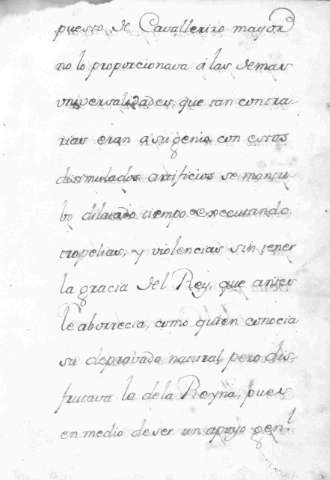 puesto de Cavallerizo mayor
no lo proporcionava á las demas
universalidades, que tan contra
rias eran a su genio, con estos
disimulados artificios se mantu
bo dilatado tiempo executando
tropelias, y violencias sin tener
la gracia del Rey, que antes
le aborrecia, como quien conocia
su depravado natural pero dis
frutava la dela Reyna, pues
en medio de ser un apoyo genl